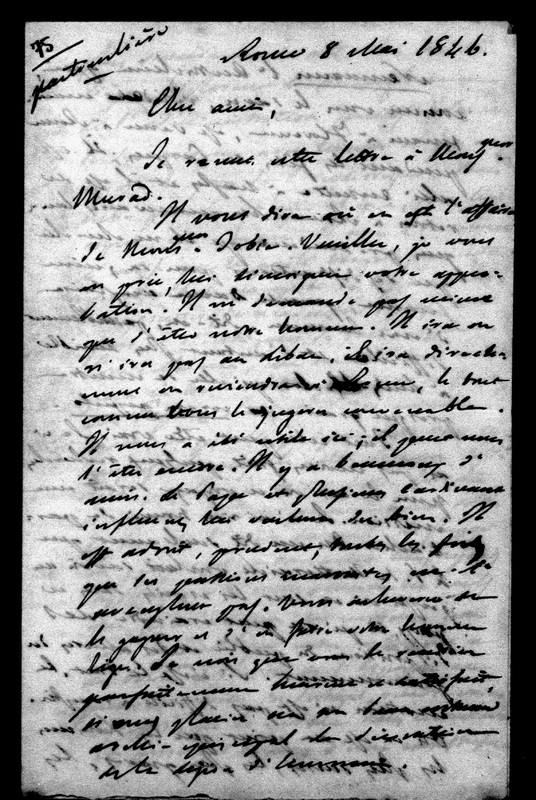 75
particulière
Rome 8 Mai 1846.
Cher ami,
Je remets cette lettre à Monsgneur
Murad.
Il vous dira où en est l'affaire
de Monsgneur Tobia. Veuillez, je vous
en prie, lui témoigner votre appro-
bation. Il ne demande pas mieux
que d'être notre homme. Il ira ou
n'ira pas au Liban, il ira directe-
ment ou reviendra à, le tout
comme vous le jugerez convenable.
Il nous a été utile ici; il peut nous
l'être encore. Il y a beaucoup d'
amis. Le Pape et plusieurs cardinaux
influents lui veulent du bien. Il
est adroit, prudent, toutes les fois
que ses passions ne l'
aveuglent pas. Vous
le gagner et d'en faire votre homme
lige. Je crois que vous le rendriez
parfaitement heureux et
si vous
la